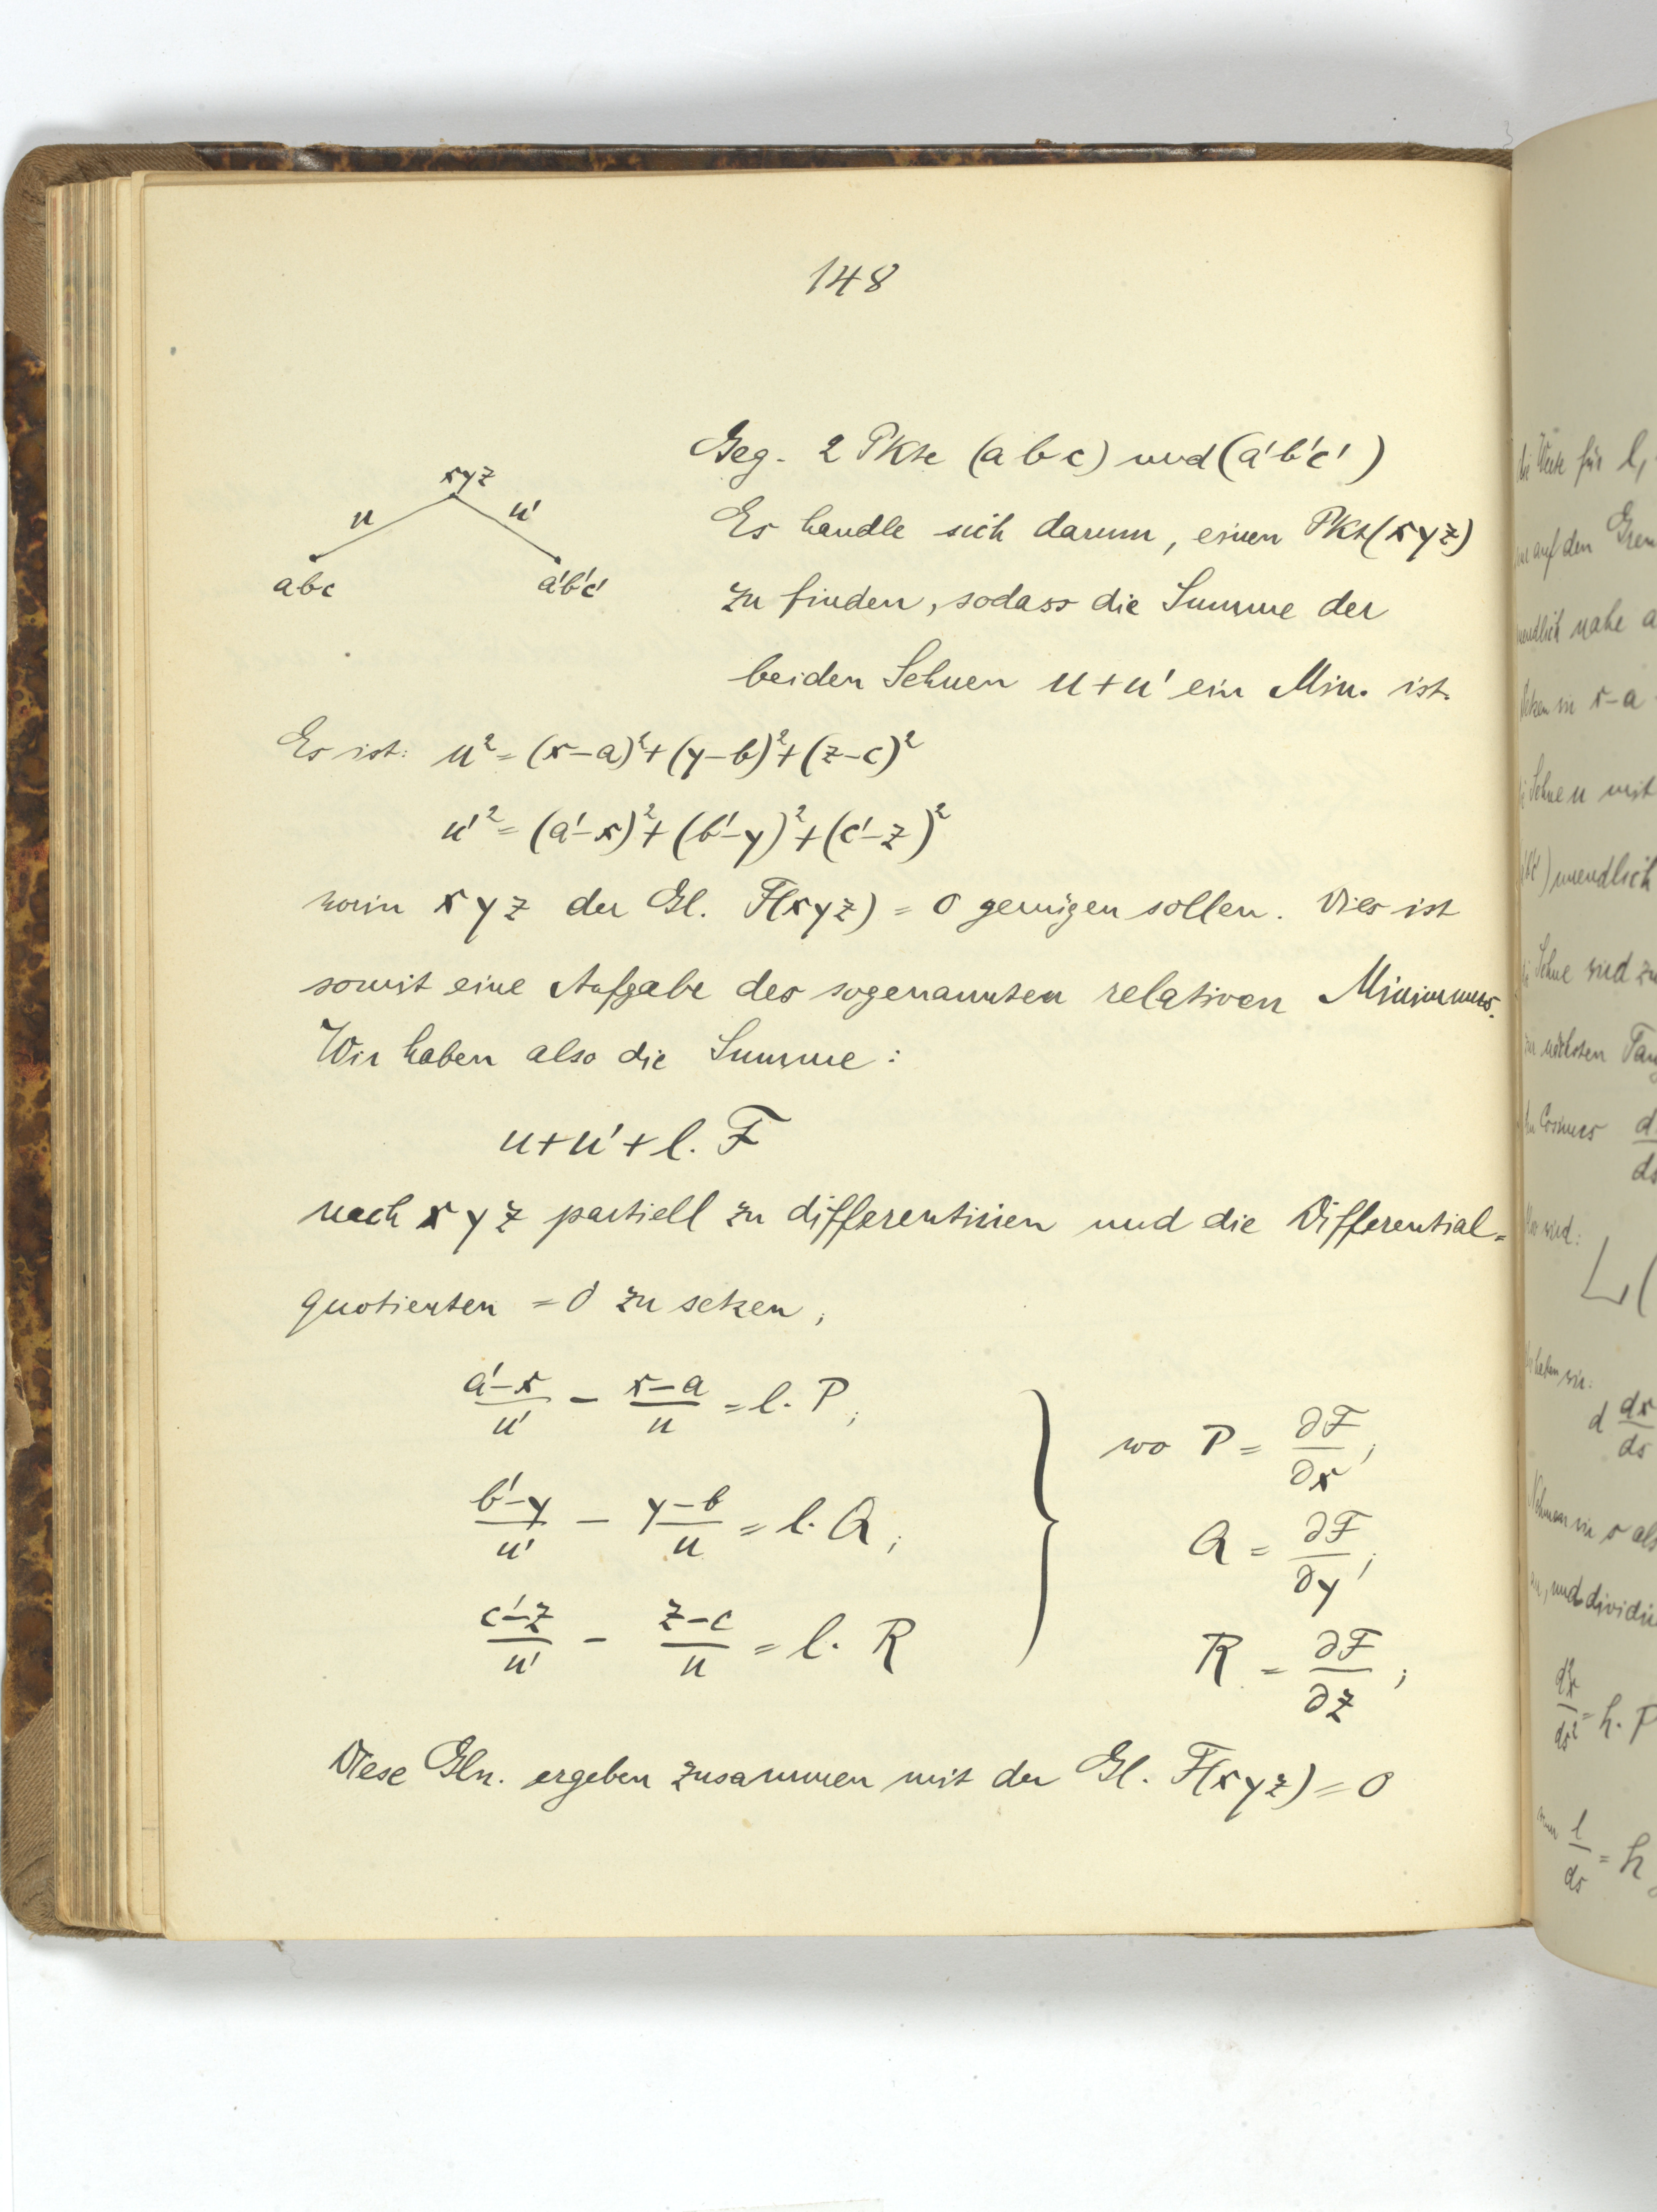 148
xyz
u u'
abc a'b'c'
Geg. 2 Pkte (a b c) und (a'b'c')
Es handle sich darum, einen Pkt (x y z)
zu finden, sodass die Summe der
beiden Sehnen u + u' ein Min. ist.
Es ist: u² = (x-a)² + (y-b)² + (z-c)²
u'² = (a'-x)² + (b'-y)² + (c'-z)²
worin x y z der Gl. F(xyz) = 0 genügen sollen. Dies ist
somit eine Aufgabe des sogenannten relativen Minimums.
Wir haben also die Summe:
u + u' + l. F
nach x y z partiell zu differentiieren und die Differential=
quotienten = 0 zu setzen;
(a'-x)/u' - (x-a)/u = l. P; wo P = ∂F/∂x;
(b'-y)/u' - (y-b)/u = l. Q; Q = ∂F/∂y;
(c'-z)/u' - (z-c)/u = l. R } R = ∂F/∂z;
Diese Gln. ergeben zusammen mit der Gl. F(xyz) = 0
die Werte für l,
auf den
unendlich nahe
x-a
Sehne u mit
unendlich
Sehne und
nächsten
Cosinus d
ds
wird:
L(
haben wir:
d dx/ds
Nehmen wir s als
und dividi
d²x/ds² = h. P
l/ds = h